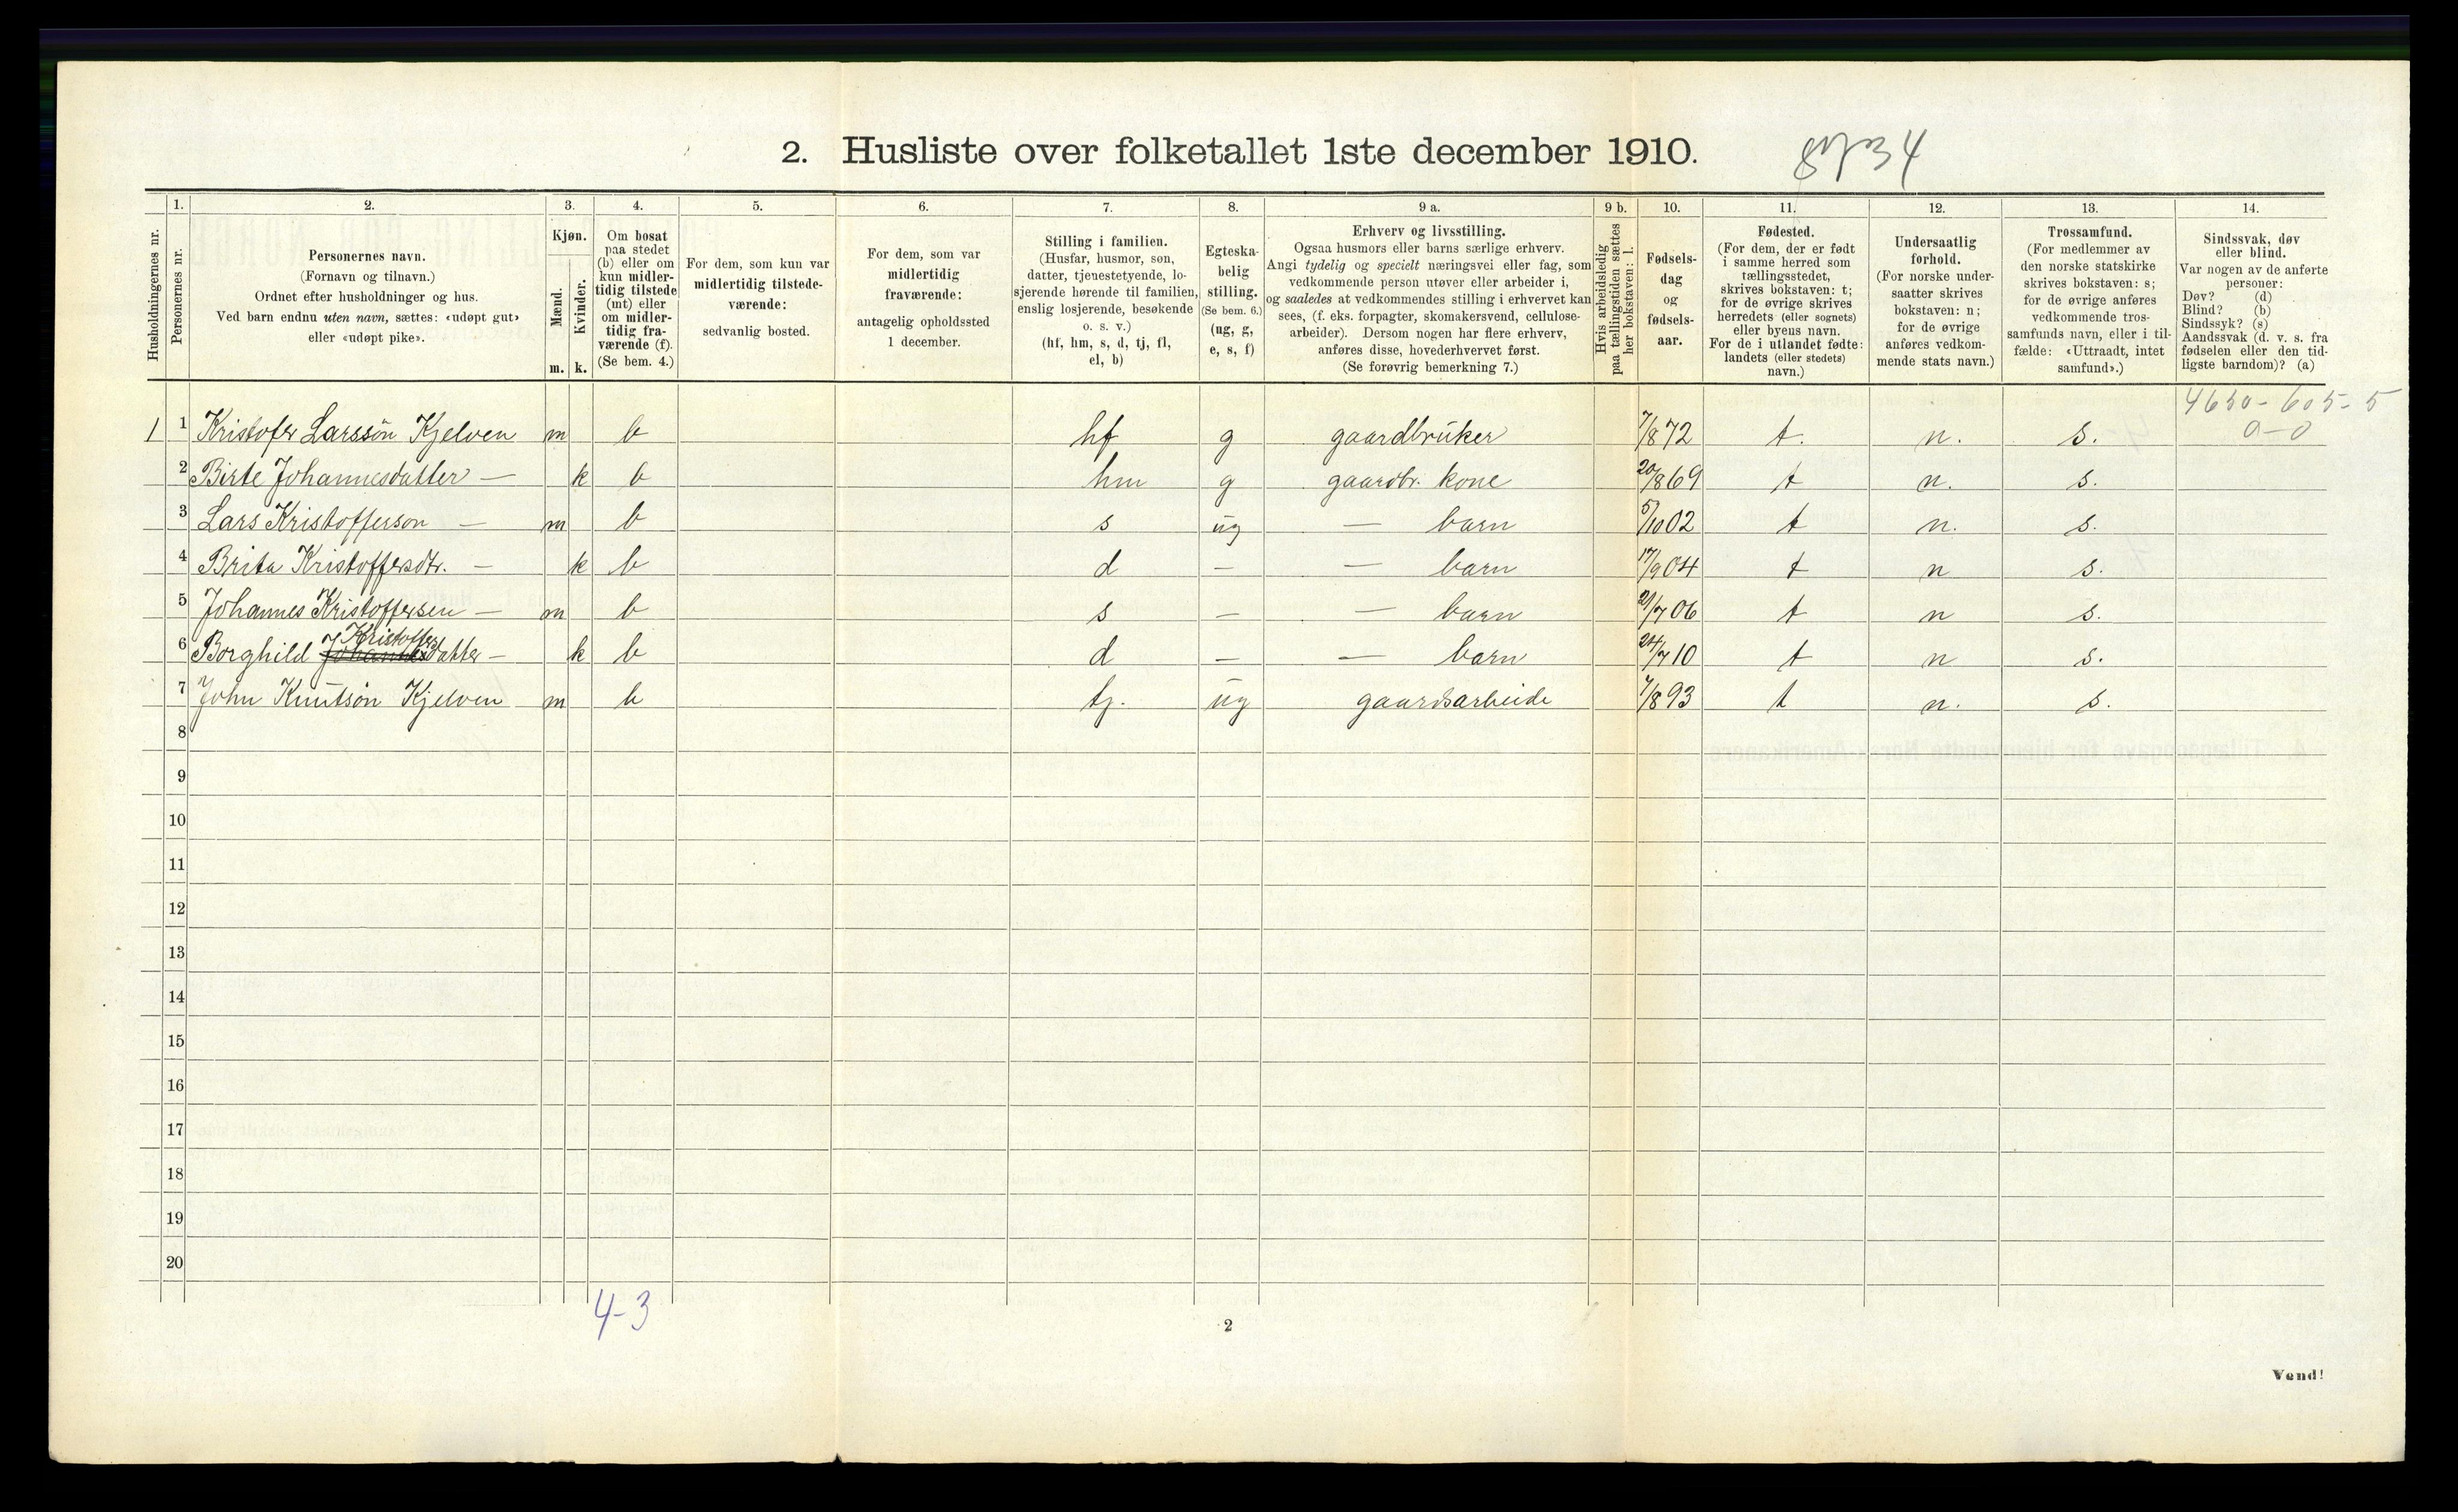 2. Husliste over folketallet 1ste december 1910.
1. 2. 3. 4. 5. 6. 7. 8. 9 a. 9 b. 10. 11. 12. 13. 14.
Husholdningernes nr.
Personernes nr.
Personernes navn.
(Fornavn og tilnavn.)
Ordnet efter husholdninger og hus.
Ved barn endnu uten navn, sættes: «udøpt gut»
eller «udøpt pike».
Kjøn.
Mænd.
Kvinder.
m. k.
Om bosat
paa stedet
(b) eller om
kun midler-
tidig tilstede
(mt) eller
om midler-
tidig fra-
værende (f).
(Se bem. 4.)
For dem, som kun var
midlertidig tilstede-
værende:
sedvanlig bosted.
For dem, som var
midlertidig
fraværende:
antagelig opholdssted
1 december.
Stilling i familien.
(Husfar, husmor, søn,
datter, tjenestetyende, lo-
sjerende hørende til familien,
enslig losjerende, besøkende
o. s. v.)
(hf, hm, s, d, tj, fl,
el, b)
Egteska-
belig
stilling.
(Se bem. 6.)
(ug, g,
e, s, f)
Erhverv og livsstilling.
Ogsaa husmors eller barns særlige erhverv.
Angi tydelig og specielt næringsvei eller fag, som
vedkommende person utøver eller arbeider i,
og saaledes at vedkommendes stilling i erhvervet kan
sees, (f. eks. forpagter, skomakersvend, cellulose-
arbeider). Dersom nogen har flere erhverv,
anføres disse, hovederhvervet først.
(Se forøvrig bemerkning 7.)
Hvis arbeidsledig
paa tællingstiden sættes
her bokstaven: l.
Fødsels-
dag
og
fødsels-
aar.
Fødested.
(For dem, der er født
i samme herred som
tællingsstedet,
skrives bokstaven: t;
for de øvrige skrives
herredets (eller sognets)
eller byens navn.
For de i utlandet fødte:
landets (eller stedets)
navn.)
Undersaatlig
forhold.
(For norske under-
saatter skrives
bokstaven: n;
for de øvrige
anføres vedkom-
mende stats navn.)
Trossamfund.
(For medlemmer av
den norske statskirke
skrives bokstaven: s;
for de øvrige anføres
vedkommende tros-
samfunds navn, eller i til-
fælde: «Uttraadt, intet
samfund».)
Sindssvak, døv
eller blind.
Var nogen av de anførte
personer:
Døv? (d)
Blind? (b)
Sindssyk? (s)
Aandssvak (d. v. s. fra
fødselen eller den tid-
ligste barndom)? (a)
4650-605-5
0-0
1 1 Kristofer Larssön Kjelven m b hf g gaardbrüker 7/8 72 t. n. s.
2 Birte Johannesdatter — k b hm g gaardbr. kone 20/8 69 t n. s.
3 Lars Kristofferson — m b s üg — barn 5/10 02 t n. s.
4 Brita Kristoffersdtr. — k b d — — barn 17/9 04 t n s.
5 Johannes Kristoffersen — m b s — — barn 21/7 06 t n s.
Kristoffers
6 Borghild Johannesdatter — k b d — — barn 24/7 10 t n s.
7 John Knütsön Kjelven m b tj. üg gaardsarbeide 7/8 93 t n. s.
8
9
10
11
12
13
14
15
16
17
18
19
20
4-3
2
Vend!